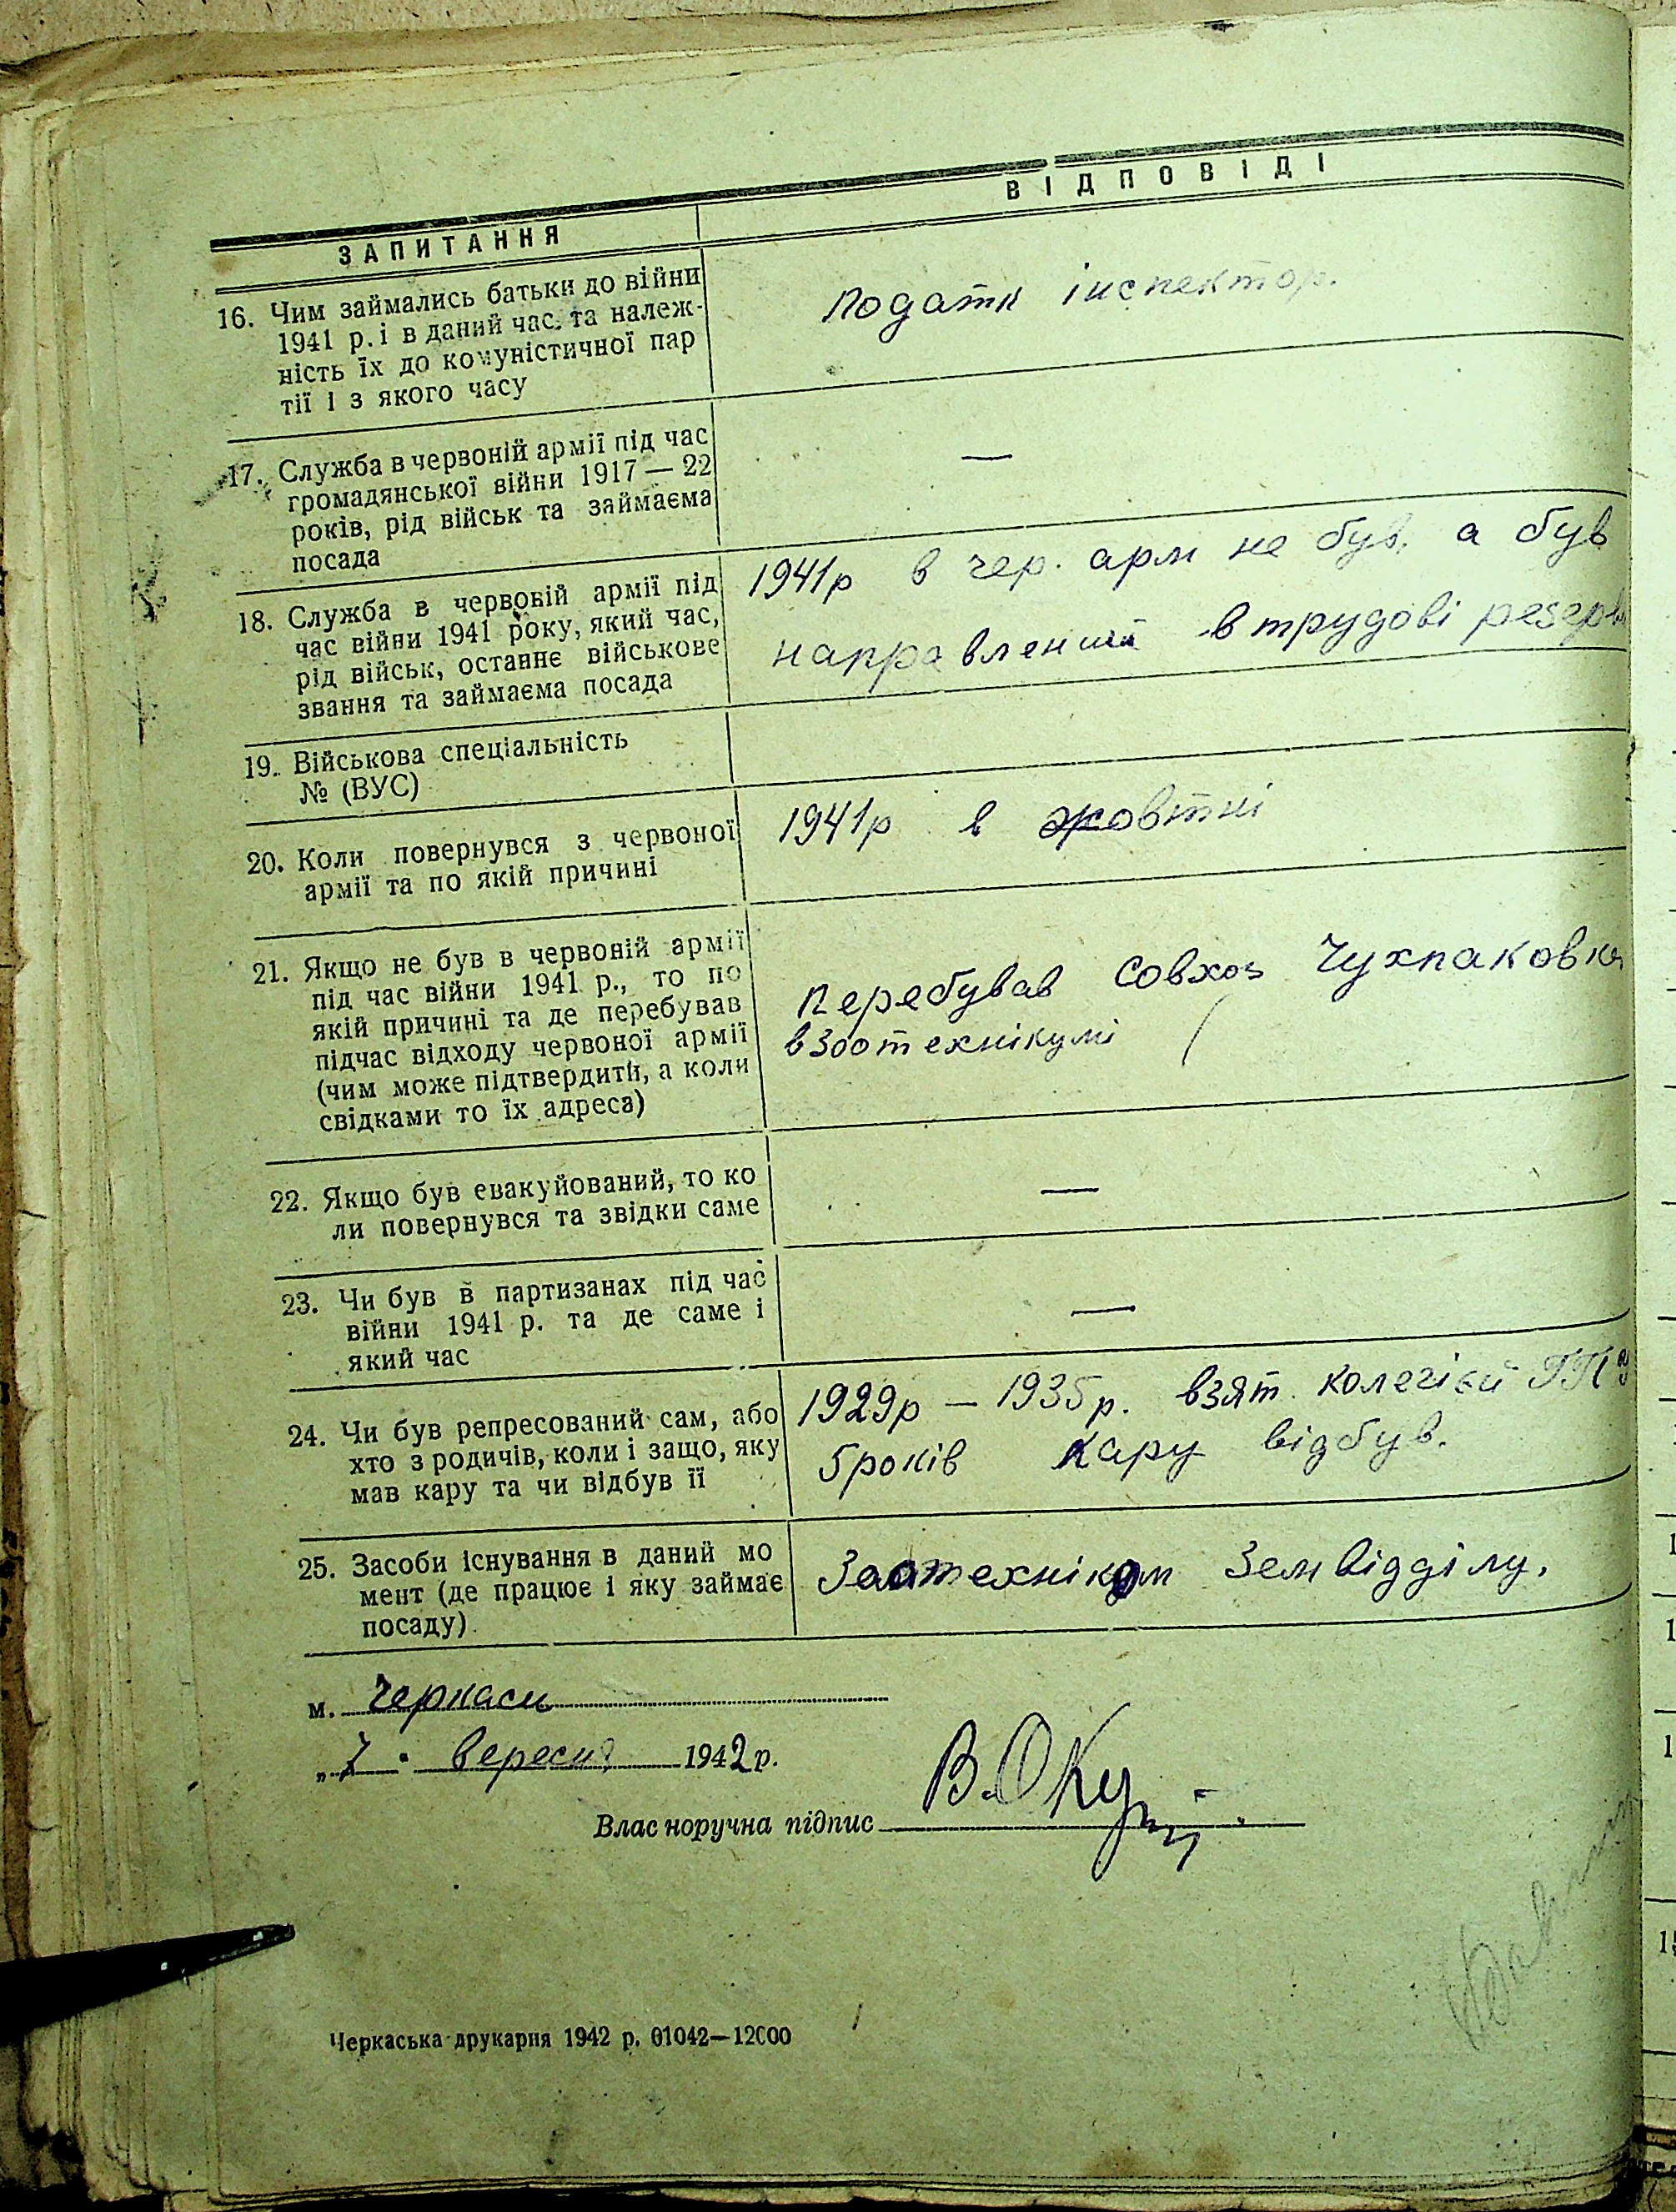 ЗАПИТАННЯ
ВІДПОВІДІ
16. Чим займались батьки до війни
1941 р. і в даний час та належ-
ність їх до комуністичної пар
тії і з якого часу
податк інспектор.
17. Служба в червоній армії під час
громадянської війни 1917 — 22
років, рід військ та займаєма
посада
—
18. Служба в червоній армії під
час війни 1941 року, який час,
рід військ, останнє військове
звання та займаєма посада
1941р в чер. арм не був, а був
направлений в трудові резерви
19. Військова спеціальність
№ (ВУС)
20. Коли повернувся з червоної
армії та по якій причині
1941р в жовтні
21. Якщо не був в червоній армії
під час війни 1941 р., то по
якій причині та де перебував
підчас відходу червоної армії
(чим може підтвердити, а коли
свідками то їх адреса)
Перебував Совхоз Чухпаковка
в Зоотехнікумі
22. Якщо був евакуйований, то ко
ли повернувся та звідки саме
—
23. Чи був в партизанах під час
війни 1941 р. та де саме і
який час
—
24. Чи був репресований сам, або
хто з родичів, коли і защо, яку
мав кару та чи відбув її
1929р — 1935р. взят колегією ГПУ
5років кару відбув.
25. Засоби існування в даний мо
мент (де працює і яку займає
посаду)
Заотехніком Земвідділу.
м. Черкаси
„7" вересня 1942 р.
Власноручна підпис
Черкаська друкарня 1942 р. 01042—12000